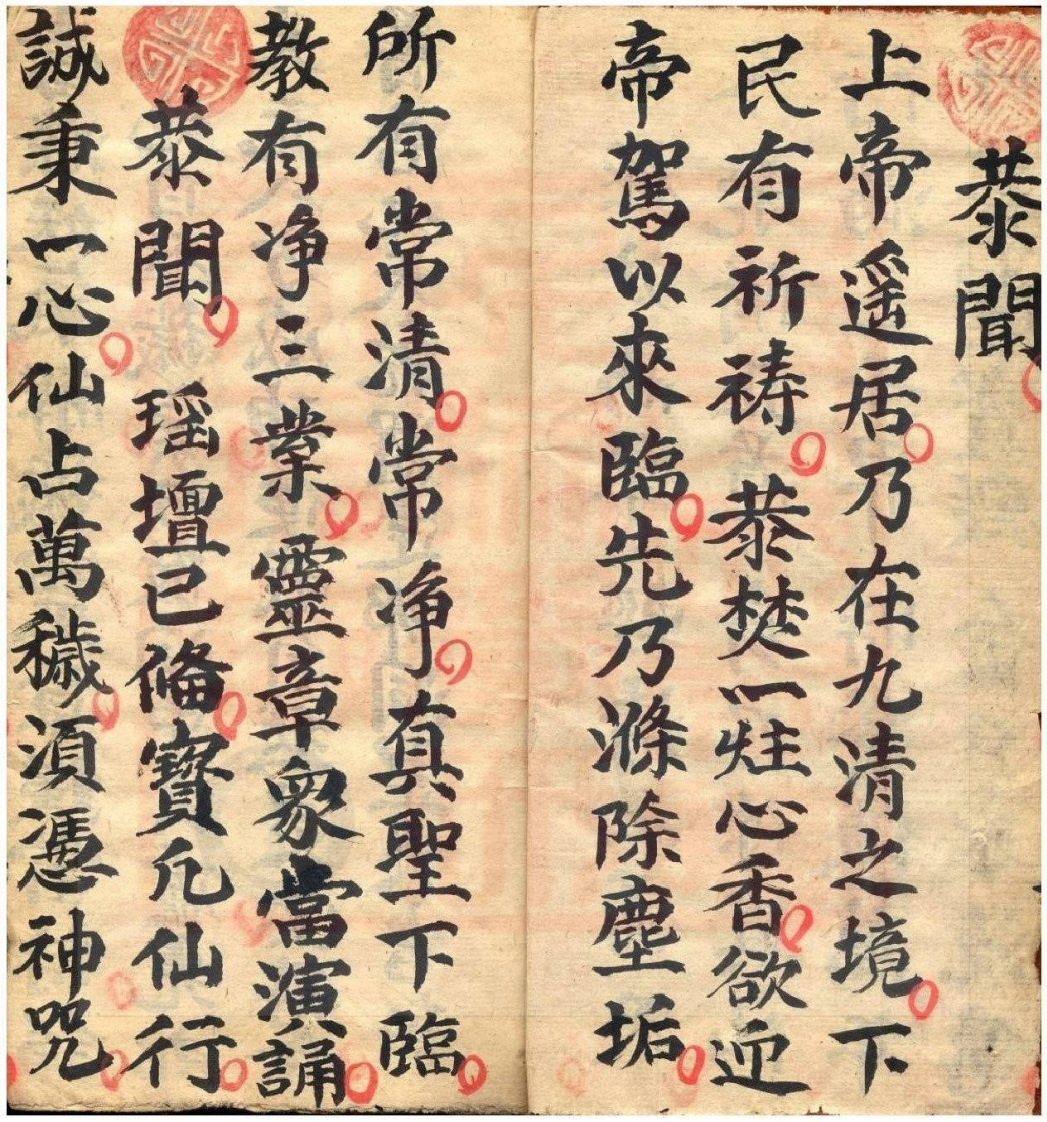 恭聞
上帝遥居乃在九清之境下
民有祈祷恭焚一炷心香欲迎
帝駕以來臨先乃滌除塵垢
所有常清常净真聖下臨
教有净三業霊章衆當演誦
恭聞瑶壇已俻寳凢仙行
誠秉一心仙占萬穢須憑神呪